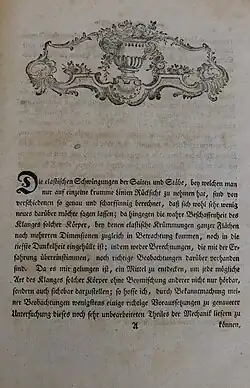 Die elastischen Schwingungen der Saiten und Stäbe, bey welchen man
nur auf einzelne krumme Linien Rücksicht zu nehmen hat, sind von
verschiedenen so genau und scharfsinnig berechnet, daß sich wohl sehr wenig
neues darüber möchte sagen lassen; da hingegen die wahre Beschaffenheit des
Klanges solcher Körper, bey denen elastische Krümmungen ganzer Flächen
nach mehreren Dimensionen zugleich in Betrachtung kommen, noch in die
tiefste Dunkelheit eingehüllt ist; indem weder Berechnungen, die mit der Er-
fahrung übereinstimmen, noch richtige Beobachtungen darüber vorhanden
sind. Da es mir gelungen ist, ein Mittel zu entdecken, um jede mögliche
Art des Klanges solcher Körper ohne Beymischung anderer nicht nur hörbar,
sondern auch sichtbar darzustellen; so hoffe ich, durch Bekanntmachung mei-
ner Beobachtungen wenigstens einige richtige Voraussetzungen zu genauerer
Untersuchung dieses noch sehr unbearbeiteten Theiles der Mechanik liefern zu
A können,